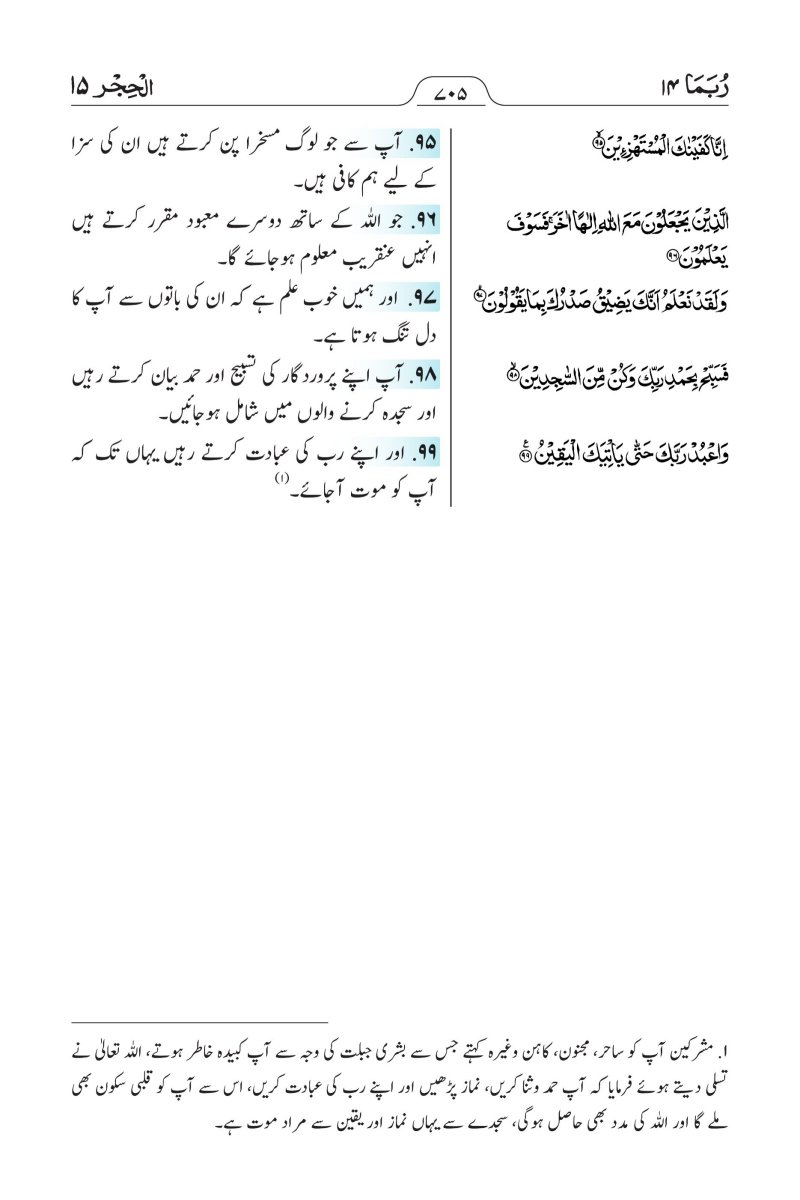 رُبَمَا ۱۴
۷۰۵
الْحِجْر ۱۵
اِنَّا كَفَيْنٰكَ الْمُسْتَهْزِءِيْنَ ۙ۹۵
الَّذِيْنَ يَجْعَلُوْنَ مَعَ اللّٰهِ اِلٰهًا اٰخَرَ ۚ فَسَوْفَ
يَعْلَمُوْنَ ۹۶
وَلَقَدْ نَعْلَمُ اَنَّكَ يَضِيْقُ صَدْرُكَ بِمَا يَقُوْلُوْنَ ۙ۹۷
فَسَبِّحْ بِحَمْدِ رَبِّكَ وَكُنْ مِّنَ السّٰجِدِيْنَ ۙ۹۸
وَاعْبُدْ رَبَّكَ حَتّٰى يَاْتِيَكَ الْيَقِيْنُ ۧ۹۹
۹۵. آپ سے جو لوگ مسخرا پن کرتے ہیں ان کی سزا
کے لیے ہم کافی ہیں۔
۹۶. جو اللہ کے ساتھ دوسرے معبود مقرر کرتے ہیں
انہیں عنقریب معلوم ہوجائے گا۔
۹۷. اور ہمیں خوب علم ہے کہ ان کی باتوں سے آپ کا
دل تنگ ہوتا ہے۔
۹۸. آپ اپنے پروردگار کی تسبیح اور حمد بیان کرتے رہیں
اور سجدہ کرنے والوں میں شامل ہوجائیں۔
۹۹. اور اپنے رب کی عبادت کرتے رہیں یہاں تک کہ
آپ کو موت آجائے۔(۱)
۱. مشرکین آپ کو ساحر، مجنون، کاہن وغیرہ کہتے جس سے بشری جبلت کی وجہ سے آپ کبیدہ خاطر ہوتے، اللہ تعالیٰ نے
تسلی دیتے ہوئے فرمایا کہ آپ حمد وثنا کریں، نماز پڑھیں اور اپنے رب کی عبادت کریں، اس سے آپ کو قلبی سکون بھی
ملے گا اور اللہ کی مدد بھی حاصل ہوگی، سجدے سے یہاں نماز اور یقین سے مراد موت ہے۔